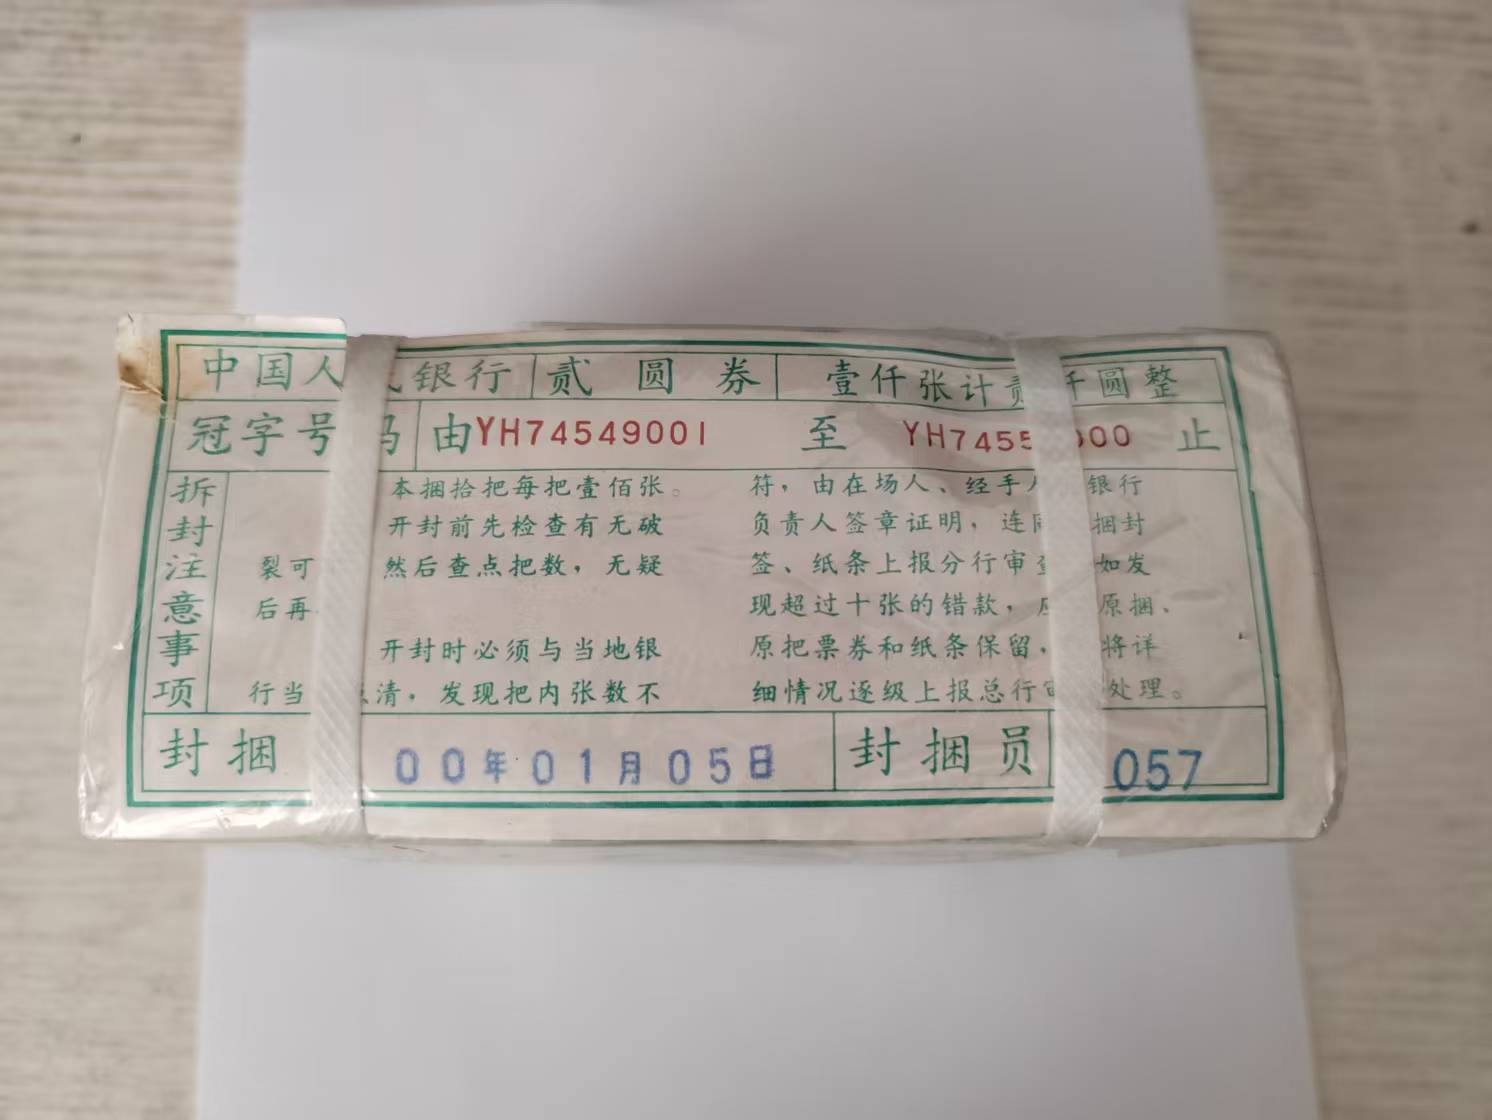 中国人 银行 贰圆券 壹仟张计贰 仟圆整
冠字号码 由YH74549001 至 YH7455 000 止
拆封注意事项
本捆拾把每把壹佰张。
开封前先检查有无破
裂可 然后查点把数，无疑
后再
开封时必须与当地银
行当 点清，发现把内张数不
符，由在场人、经手 银行
负责人签章证明，连同 捆封
签、纸条上报分行审查 如发
现超过十张的错款，应 原捆、
原把票券和纸条保留， 将详
细情况逐级上报总行审 处理。
封捆 00年01月05日 封捆员 057